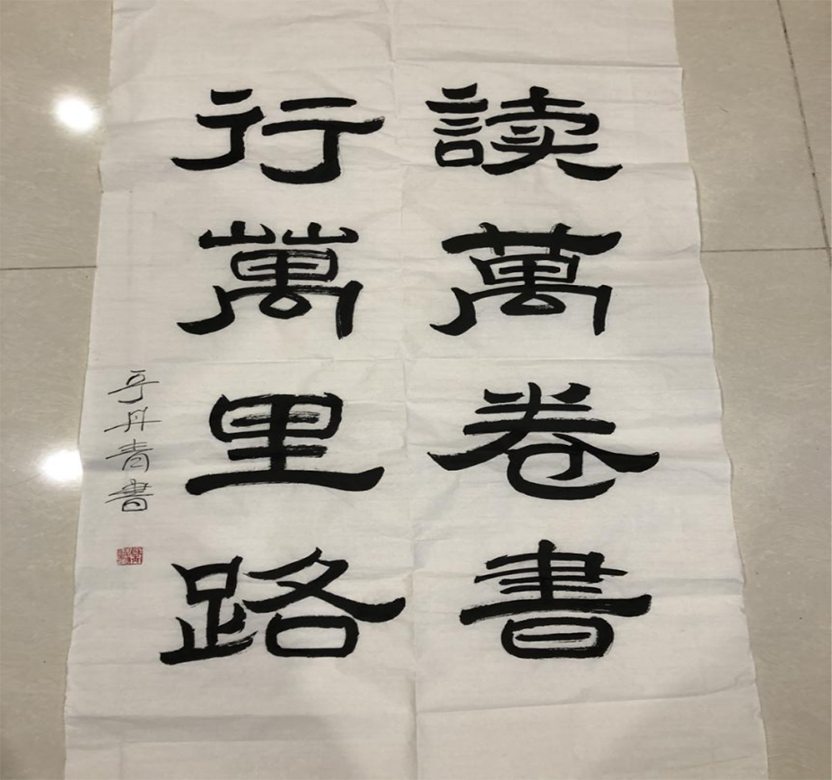 讀萬卷書
行萬里路
于丹青書